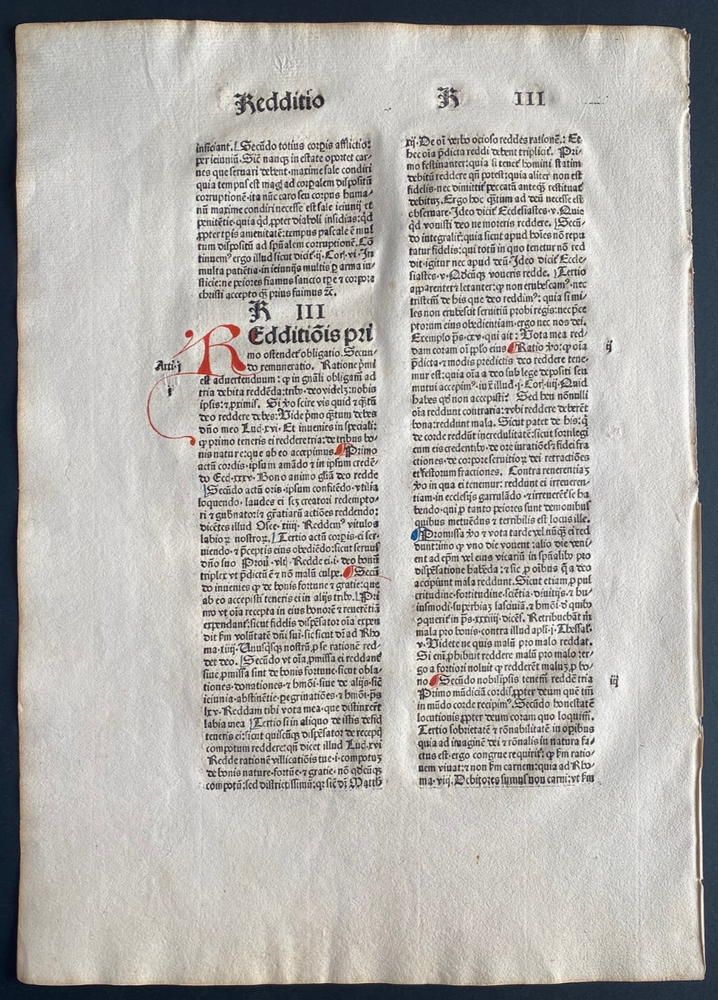 Redditio
R III
inficiant. Secũdo totius corpis afflictio:
per ieiuniũ. Sicut nanqꝫ in estate oportet car-
nes que seruari debent. maxime sale condiri
quia tempus est magꝭ ad corpalem dispositũ
corruptionẽ. ita nũc caro seu corpus huma-
nũ maxime condiri necesse est sale ieiunij et
penitẽtie. quia qd ꝓpter diaboli insidias: qd
ꝓpter tpis amenitatẽ: tempus pascale ẽ mul
tum dispositũ ad spũalem corruptionẽ. Cõ
tinuem⁹ ergo illud sicut dicit̉ .ij. Cor̃. vi. In
multa patiẽtia. in ieiunijs multis ꝑ arma iu-
sticie: ne priores fiamus sancto tꝑe et corpore
christi accepto qꝫ prius fuimus ꝛc.
R III
REdditiõis pri
mo ostendet̉ obligatio. Secun-
do remuneratio. Ratione pͥmi
Arti. j
est aduertendum: ꝙ in gñali obligam̃ ad
j
tria debita reddẽda: trib. deo videlꝫ: nobis
ipsis: et ꝓximis. Si ꝟo scire vis quid et qͣtũ
deo reddere debes: Uide pͥmo qͣtum debes
dño meo Luc. xvi. Et inuenies in speciali:
ꝙ primo teneris ei reddere tria: de tribus bo-
nis nature: que ab eo accepimus. Primo
actũ cordis. ipsum amãdo et in ipsum credẽ-
do Ecci. xxxv. Bono animo gl̃iã deo redde
Secũdo actũ oris. ipsum confitẽdo. vtilia
loquendo. laudes ei scꝫ creatori redempto-
ri et gubernatori et gratiarũ actiões reddendo:
dicẽtes illud Osee. xiiij. Reddem⁹ vitulos
labioꝝ nostroꝝ. Tertio actũ corpis. ei ser-
uiendo. et p̃ceptis eius obediẽdo: sicut seruus
dño suo
triplex vt p̃dictũ ẽ et nõ malũ culpe. Secũ
do inuenies ꝙ de bonis fortune et gratie: que
ab eo accepisti teneris ei in alijs trib. Pri
mo vt oĩa recepta in eius honorẽ et reuerẽtiã
expendant̉: sicut fidelis dispẽsator oĩa expen
dit km volũtatẽ dñi sui. sicut dñi ad Ro
ma. xiiij. Unusqͥsqꝫ nostrũ ꝓ se rationẽ red-
det deo. Secũdo vt oĩa ꝓmissa ei reddant̉
siue ꝓmissa sint de bonis fortune: sicut obla-
tiones. donationes. et hmõi. siue de alijs. sic̃
ieiunia. abstinẽtie. ꝑegrinatiões. et hmõi. ps
lxv. Reddam tibi vota mea. que distinxerũt
labia mea Tertio si in aliquo de istis defici
teneris ei: sicut quiscũqꝫ dispẽsator de receptꝭ
compotum reddere: qñ dicet illud Luc. xvi
Redde rationẽ villicatiõis tue. i. compotũ
de bonis nature. fortũe. et gratie. nõ qdẽcũqꝫ
compotũ: sed districtissimũ: qꝛ sic dꝛ Matth
xij. De oĩ verbo ocioso reddes rationẽ: Et
hec oĩa p̃dicta reddi debent tripliciter̃. Pri-
mo festinanter: quia si tenet̉ homini statim
debitũ reddere qñ potest: quia aliter non est
fidelis. nec dimittit̉ peccatũ anteqꝫ restituat̉
debitũ. Ergo hoc qͣtum ad deũ necesse est
obseruare. Ideo dicit̉ Ecclesiastes. v. Quic
qd vouisti deo ne moreris reddere. Secũ-
do integralit̉: quia sicut apud hoĩes nõ repu
tatur fidelis: qui totũ in quo tenetur nõ red
dit. igitur nec apud deũ. Ideo dicit̉ Eccle-
siastes. v. Qdcũqꝫ voueris redde. Tertio
apparenter et letanter: ꝙ non erubescam⁹. nec
tristem̃ de his que deo reddim⁹: quia si mi-
les non erubescit seruitiũ probi regis: nec p̃ce
ptorum eius obedientiam. ergo nec nos dei.
Exemplo ps. cxv. qui ait: Uota mea red-
dam coram oĩ ppl̃o eius Ratio ꝟo: ꝙ oĩa
ij
p̃dicta. et modis predictis deo reddere tene-
mur est: quia oĩa a deo sub lege depositi seu
mutui accepim⁹. iu. illud. j. Cor. iiij. Quid
habes qd non accepisti? Sed heu nõnulli
oĩa reddunt contraria: vbi reddere deberẽt
bona: reddunt mala. Sicut patet de his: ꝙ
de corde reddũt incredulitatẽ: sicut sortilegi
cum eis credentib. de ore iurationẽs et fidei fra
ctiones. de corpore seruitiorũ dei retractiões
et festorum fractiones. Contra reuerentiaꝫ
ꝟo in qua ei tenemur: reddunt ei irreueren-
tiam. in ecclesijs garrulãdo. et irreuerẽt̉ se ha
bendo. qui ꝑ tanto peiores sunt demonibus
quibus metuẽdus et terribilis est locus ille.
Promissa ꝟo et vota tarde vel nũqꝫ ei red
dunt: imo ꝙ vno die vouent: alio die veni
unt ad epm̃ vel eius vicariũ in spũalib. ꝓ
dispẽsatione habẽda: et sic ꝓ oĩbus qͣ a deo
acceperunt mala reddunt. Sicut etiam ꝓ pul
critudine. fortitudine. sciẽtia. diuitijs. et hu
iusmodi. superbiaꝫ. lasciuiã. et hmõi. de quib.
ꝯquerit̉ in ps. xxxiiij. dicẽs. Retribuebãt m̃
mala pro bonis. contra illud apl̃i. j. Thessal̃.
v. Uidete ne quis malũ pro malo reddat.
Si em̃ ꝓhibuit reddere malũ pro malo: er-
go a fortiori noluit ꝙ redderẽt maluꝫ ꝓ bo-
no Secũdo nobisipsis tenem̃ reddẽ tria
iij
Primo mũdiciã cordis. ꝓpter deum que tm̃
in mũdo corde recipim⁹. Secũdo honestatẽ
locutionis. ꝓpter deum coram quo loquim̃.
Tertio sobrietatẽ et rõnabilitatẽ in oꝑibus
quia ad imaginẽ dei et rõnalis in natura fa-
ctus est. ergo congrue requirit̉: ꝙ km ratio-
nem viuat: et non km carnem: quia ad Ro-
ma. viij. Debitores sumus non carni: vt km